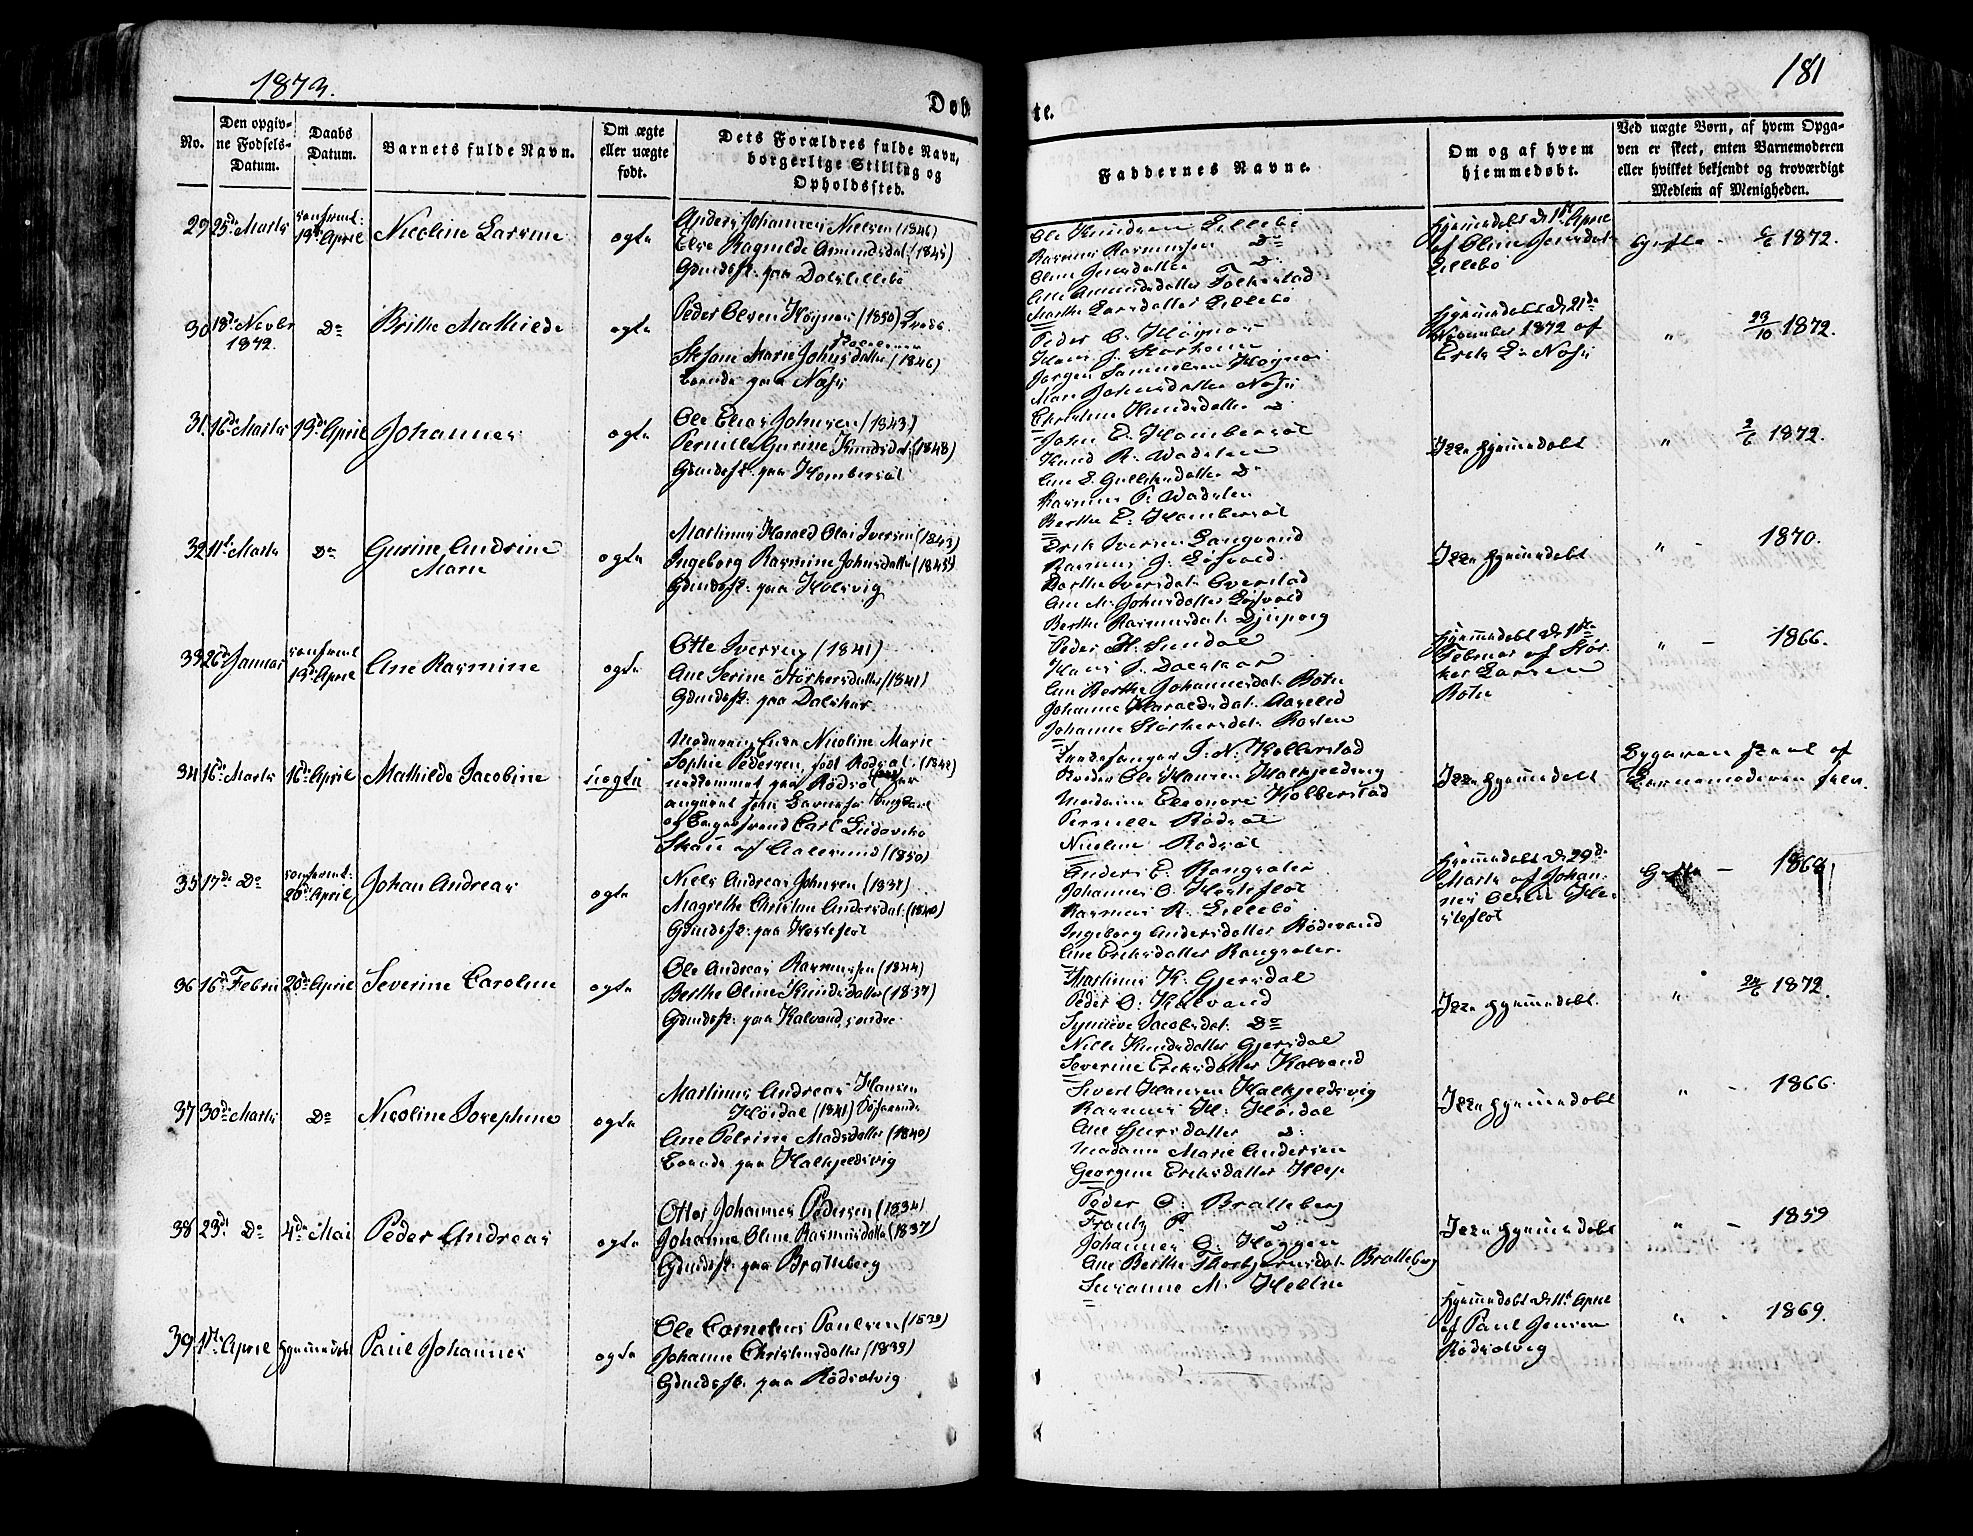 1873.
181
Døb
te.
No.
Den opgiv-
ne Fødsels-
Datum.
Daabs
Datum.
Barnets fulde Navn.
Om ægte
eller uægte
født.
Dets Forældres fulde Navn,
borgerlige Stilling og
Opholdssted.
Faddernes Navne.
Om og af hvem
hjemmedøbt.
Ved uægte Børn, af hvem Opga-
ven er skeet, enten Barnemoderen
eller hvilket bekjendt og troværdigt
Medlem af Menigheden.
29 25de Marts
13de April
Nicoline Larsine
ægte
Anders Johannes Nielsen (1846)
Else Ragnilde Amundsdat: (1845)
Gmdsf: paa Dalslillebø
Ole Knudsen Lillebø
Rasmus Rasmussen Do
Oline Jensdatter Do
Ane Amundsdatter Folkestad
Marthe Larsdatter Lillebø
af Oline Jensdat:
Lillebø
Gifte - 6/6 1872.
30 18de Novbr
1872.
Do
Brithe Mathilde
ægte
Peder Olsen Høgnes (1850)
Stefanie Marie Johnsdatter (1846)
boende paa Næss
Peder O. Høgnes
Jørgen Samuelsen Høgnes
Mari Johnsdatter Næss
November 1872 af
Erik L: Næss
" 23/10 1872.
31. 16de Marts
13de April
Johannes
ægte
Ole Elias Johnsen (1843)
Pernille Gurine Knudsdat: (1848)
Gmdsf: paa Hombersæt
John E. Hombersæt
Knud R. Wadsten
Rasmus P. Wadsten
Berthe E. Hombersæt
Ikke hjemmedøbt
" 2/6 1872.
32 11te Marts
Do
Gurine Andrine
Marie
ægte
Martinus Harald Olai Iversen (1843)
Ingeborg Rasmine Johnsdatter (1845)
Gmdsf: paa Holsvig
Erik Iversen Langvand
Rasmus J. Løfvold
Dorthe Iversdat: Overstad
Ane M. Johnsdatter Løfvold
Berthe Rasmusdat: Djupvig
Ikke hjemmedøbt
" - 1870.
33 26de Januar
13de April
Ane Rasmine
ægte
Otte Iversen (1841)
Ane Serine Størkersdatter (1841)
Gmdsf: paa Dalskar
Peder H. Sundal
Hans J. Dalskar
Ane Berthe Johannesdat: Botn
Johanne Haraldsdat: Aarseth
Johanne Størkersdat: Rosten
Februar af Stør-
ker Larsen
Botn
" - 1866.
34 16de Marts
16de April
Mathilde Jacobine
uægte
Moderen: Enke Nicoline Marie
Sophie Pedersen, født Rødsæt (1842)
af Carl Ludoviko
af Aalesund (1850)
J. N. Kolberstad
Ole Hansen Halkjeldsvig
Madame Eleonore Kolberstad
Pernille Rødsæt
Nicoline Rødsæt
Ikke hjemmedøbt
Barnemoderen selv.
35 17de Do
20de April
Johan Andreas
ægte
Niels Andreas Johnsen (1837)
Magrethe Christine Andersdat: (1840)
Gmdsf: paa Hosteflot
Anders E. Rangsæter
Johannes O. Hosteflot
Rasmus R. Lillebø
Ingeborg Andersdatter Rødevand
Ane Eriksdatter Rangsæter.
Hjemmedøbt d. 29de
Marts af Johan-
nes Olsen Ho-
steflot
Gifte - 1868
36 16de Februar
20de April
Severine Caroline
ægte
Ole Andreas Rasmussen (1844)
Berthe Oline Knudsdatter (1837)
Gmdsf: paa Kalvand, søndre
Martinus K. Gjersdal
Peder O. Kalvand
Synnøve Jacobsdat: Do
Nille Knudsdatter Gjersdal
Severine Eriksdatter Kalvand
Ikke hjemmedøbt.
" 24/6 1872.
37 30de Marts
Do
Nicoline Josephine
ægte
Martinus Andreas Hansen
Høidal (1841)
Ane Petrine Madsdatter (1840)
boende paa Halkjeldsvig
Sivert Hansen Halkjeldsvig
Rasmus H. Høidal
Madame Marie Andersen
Georgine Eriksdatter Klep
Ikke hjemmedøbt
" - 1866.
38 23de Do
4de Mai
Peder Andreas
ægte
Ottos Johannes Pedersen (1834)
Johanne Oline Rasmusdatter (1837)
Gmdsf: paa Bratteberg
Peder O. Bratteberg
Frantz P.
Johannes O. Høggen
Ane Berthe Thorbjørnsdat: Bratteberg
Susanne M. Hellen
Ikke hjemmedøbt
" - 1859
39 1ste April
hjemmedøbt
Paul Johannes
ægte
Ole Cornelius Paulsen (1839)
Johanne Christensdatter (1839)
Gmdsf: paa Rødsætvig
Hjemmedøbt d. 11te April
af Paul Jensen
Rødsætvig
" - 1869.